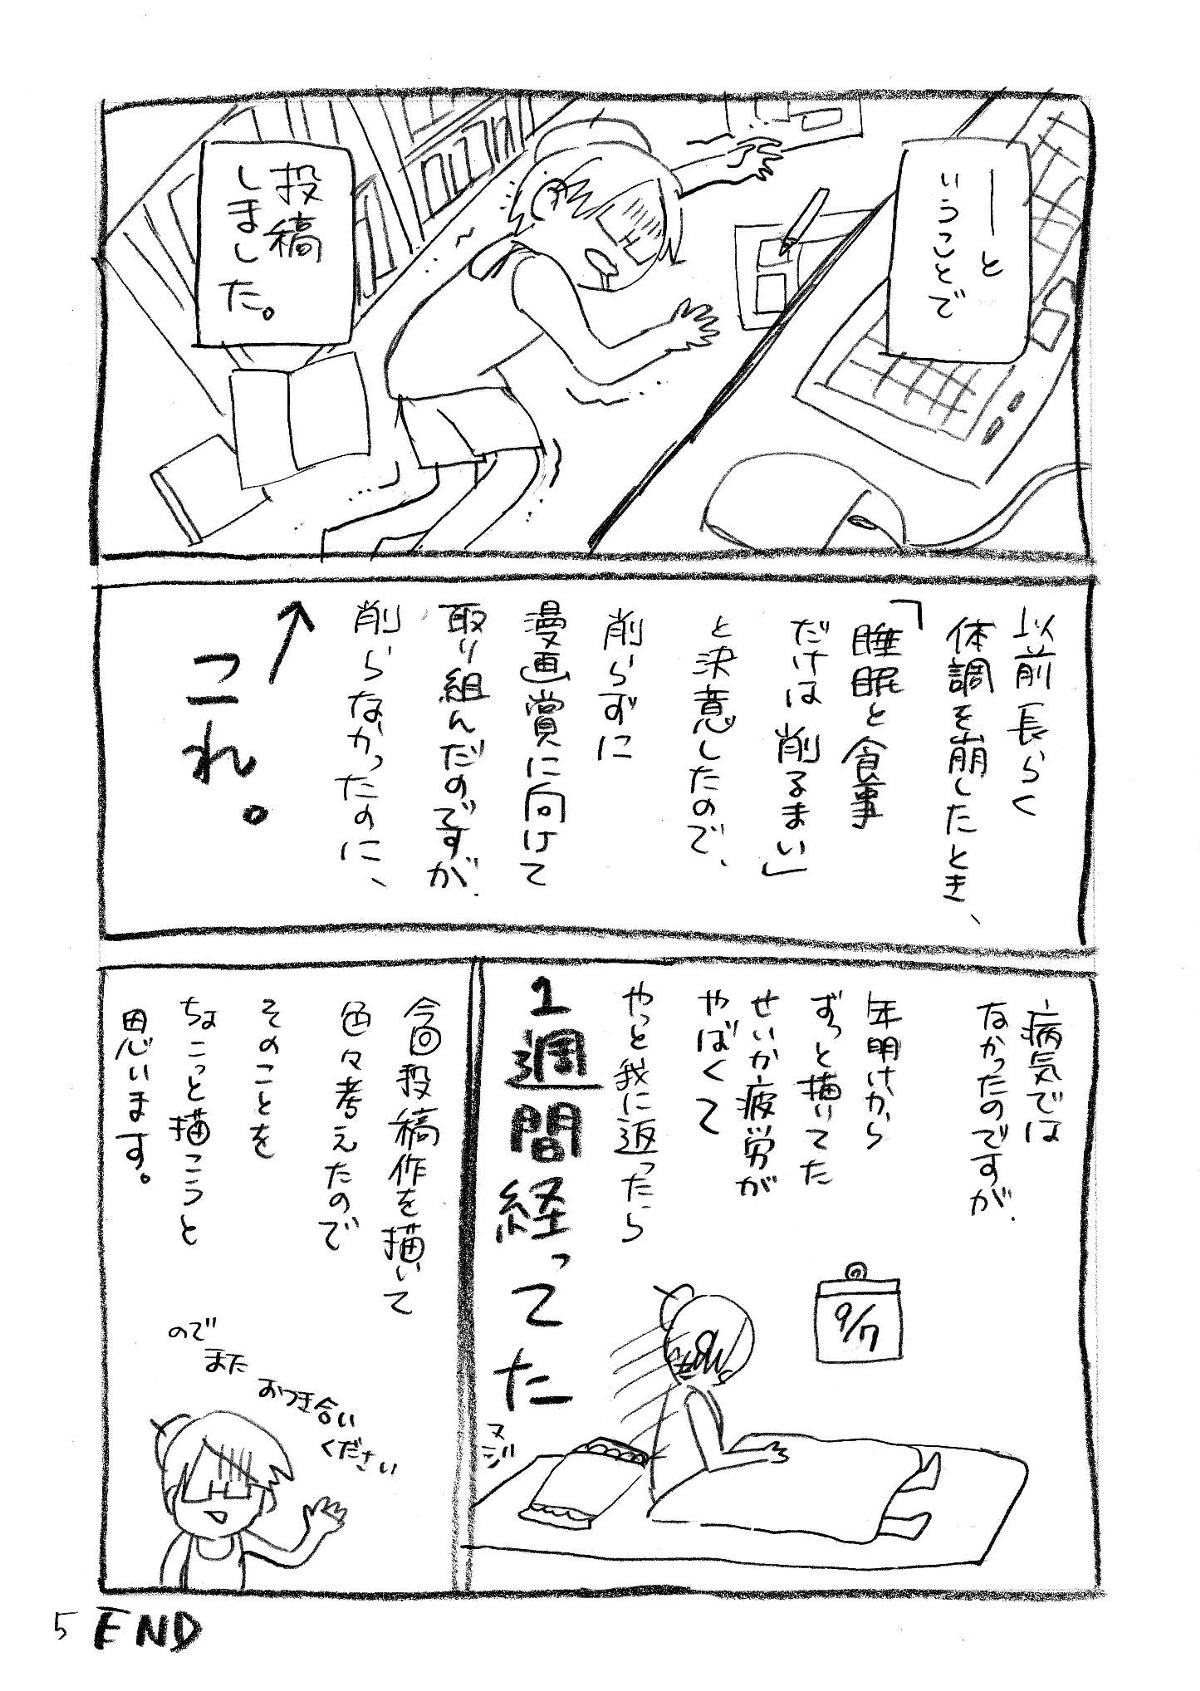 ――と
いうことで
投稿
しました。
以前長らく
体調を崩したとき、
「睡眠と食事
だけは削るまい」
と決意したので、
削らずに
漫画賞に向けて
取り組んだのですが、
削らなかったのに、
↑これ。
病気では
なかったのですが、
年明けから
ずっと描いてた
せいか疲労が
やばくて
やっと我に返ったら
1週間経ってた
9/7
マジ
今回投稿作を描いて
色々考えたので
そのことを
ちょこっと描こうと
思います。
のでまた
おつき合い
ください
5 END